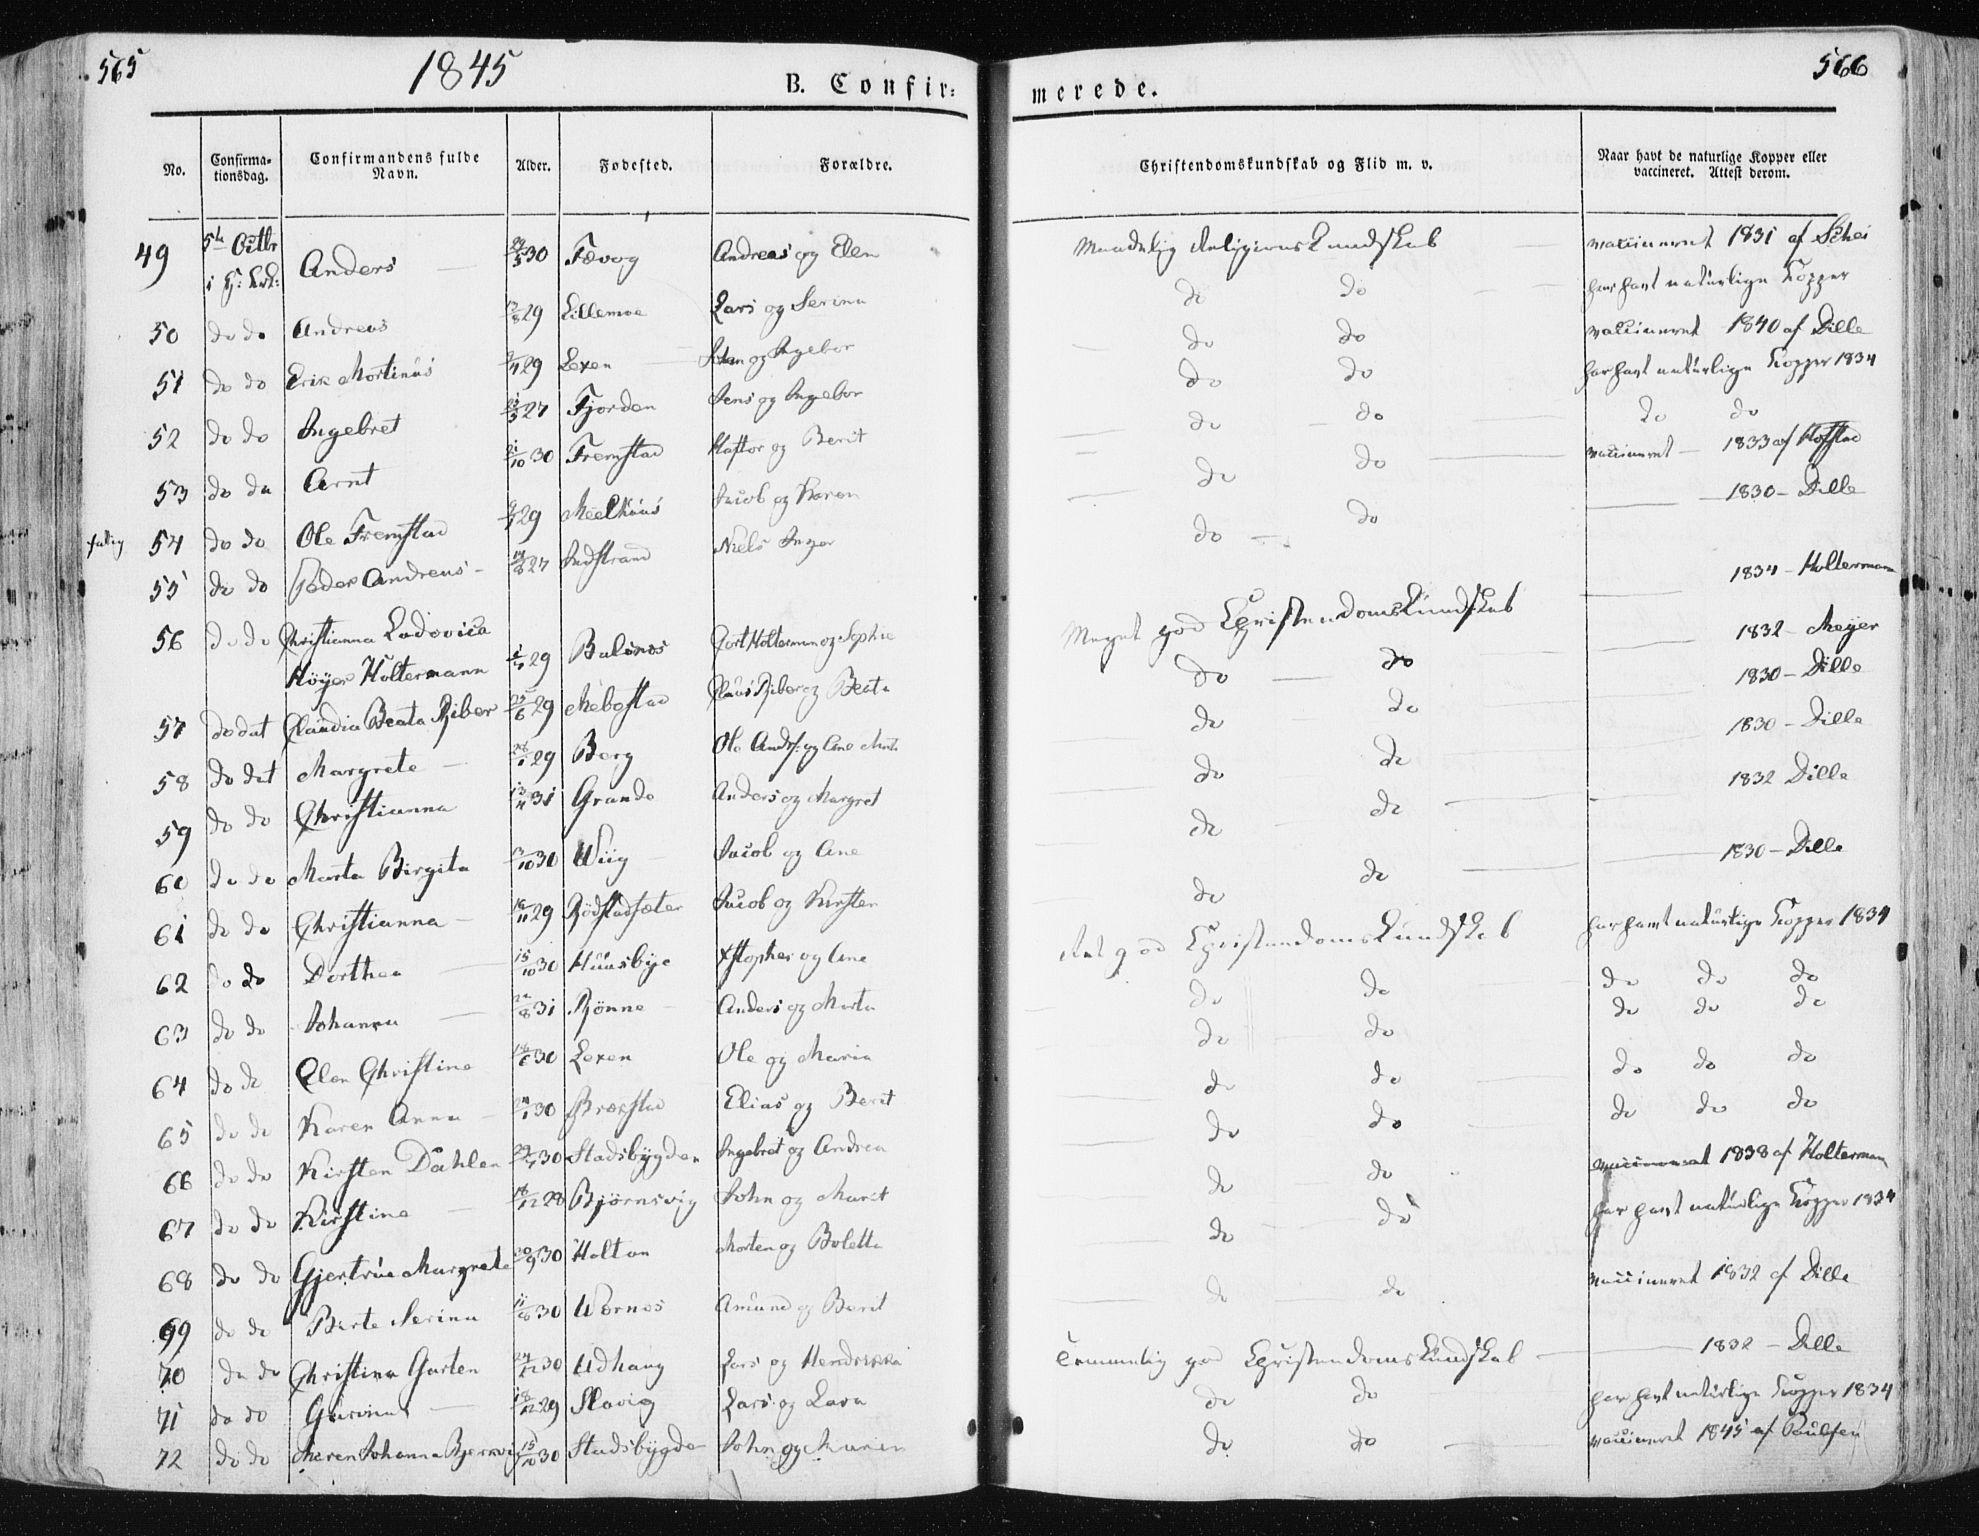 565
1845
B. Confir:
merede.
566
No. Confirma-tionsdag. Confirmandens fulde Navn. Alder. Fødested. Forældre. Christendomskundskab og Flid m. v. Naar havt de naturlige Kopper eller vaccineret. Attest derom.
49 5te Octbr Anders 30 Fævog Andreas og Elen Maadelig Religionskundskab vaccineret 1831 af Schei
50 do do Andreas 29 Lillemoe Lars og Serina do do har havt naturlige Kopper
51 do do Erik Mortinus 29 Lexen og Ingebor do do vaccineret 1840 af Dille
52 do do Ingebret 27 Fjorden Jens og Ingebor do do har havt naturlige Kopper 1834
53 do do Arnt 30 Fremstad Haftor og Berit do do do do
54 do do Ole Fremstad 29 Meelhuus Jacob og Karen do do vaccineret 1833 af Hofstad
55 do do Peder Andreas 27 Indstrand Niels Inger do do 1830 - Dille
56 do do Christianna Lodovica Høyer Holtermann 29 Balsnes Gort Holterman og Sophie Meget god Christendomskundskab 1834 - Holtermann
57 do dat Claudia Beata Riber 29 Mebostad Claus Riber og Beata do do 1832 - Meyer
58 do dat Margrete 29 Berg Ole og Ane do do 1830 - Dille
59 do do Christianna 31 Grande Anders og Margret do do 1830 - Dille
60 do do Marta Birgita 30 Wiig Jacob og Ane do do 1832 Dille
61 do do Christianna 29 Rødstadsæter Jacob og Kirsten do do 1830 - Dille
62 do do Dorthea 30 Huusbye og Ane Ret god Christendomskundskab har havt naturlige Kopper 1834
63 do do Johanna 31 Rønne Anders og Marta do do do do do
64 do do Elen Christine 30 Lexen Ole og Maria do do do do do
65 do do Karen Anna 30 Brækstad Elias og Berit do do do do do
66 do do Kirsten Dahlen 30 Stadsbygden Ingebret og Andrea do do do do do
67 do do Kirstine 28 Bjørnsvig John og Marit do do vaccineret 1838 af Holterman
68 do do Gjertrue Margrete 30 Holten Morten og Boletta do do har havt naturlige Kopper 1834
69 do do Berte Serina 30 Wernes Amund og Berit do do vaccineret 1832 af Dille
70 do do Christina Garten 30 Udhaug Lars og Hendrikka Temmelig god Christendomskundskab 1832 - Dille
71 do do 29 Slavig Lars og Lava do do har havt naturlige Kopper 1834
72 do do Maren Johanna 30 Stadsbygde John og Maren do do vaccineret 1845 af Paulsen